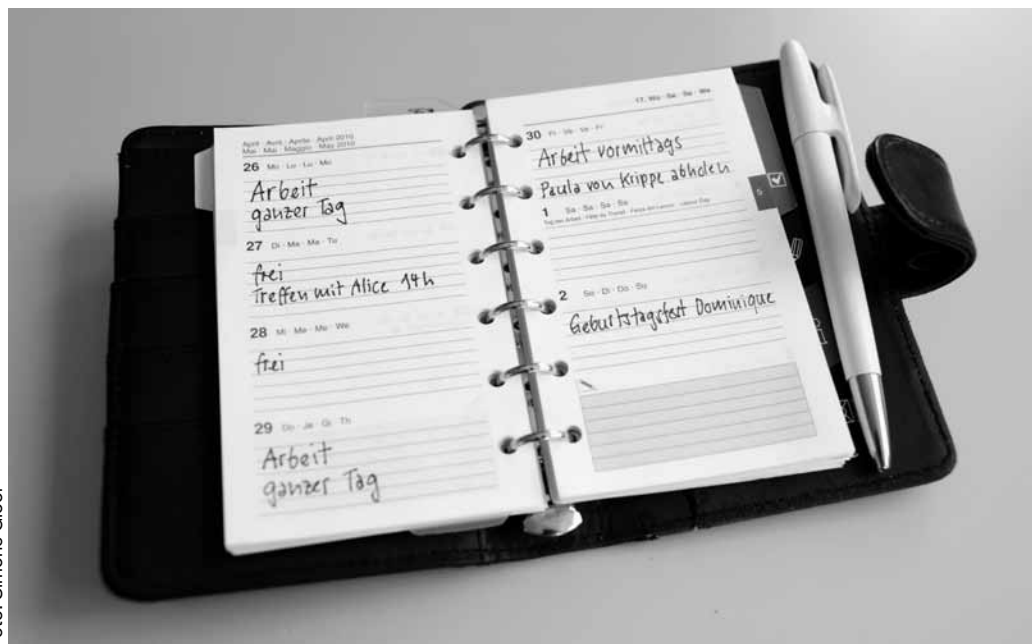 April · Avril · Aprile · April 2010
Mai · Mai · Maggio · May 2010
26 Mo · Lu · Lu · Mo
Arbeit
ganzer Tag
27 Di · Ma · Ma · Tu
frei
Treffen mit Alice 14h
28 Mi · Me · Me · We
frei
29 Do · Je · Gi · Th
Arbeit
ganzer Tag
17. Wo · Se · Se · We
30 Fr · Ve · Ve · Fr
Arbeit vormittags
Paula von Krippe abholen
1 Sa · Sa · Sa · Sa
Tag der Arbeit · Fête du Travail · Festa del Lavoro · Labour Day
2 So · Di · Do · Su
Geburtstagsfest Dominique
5
Simone Gloor